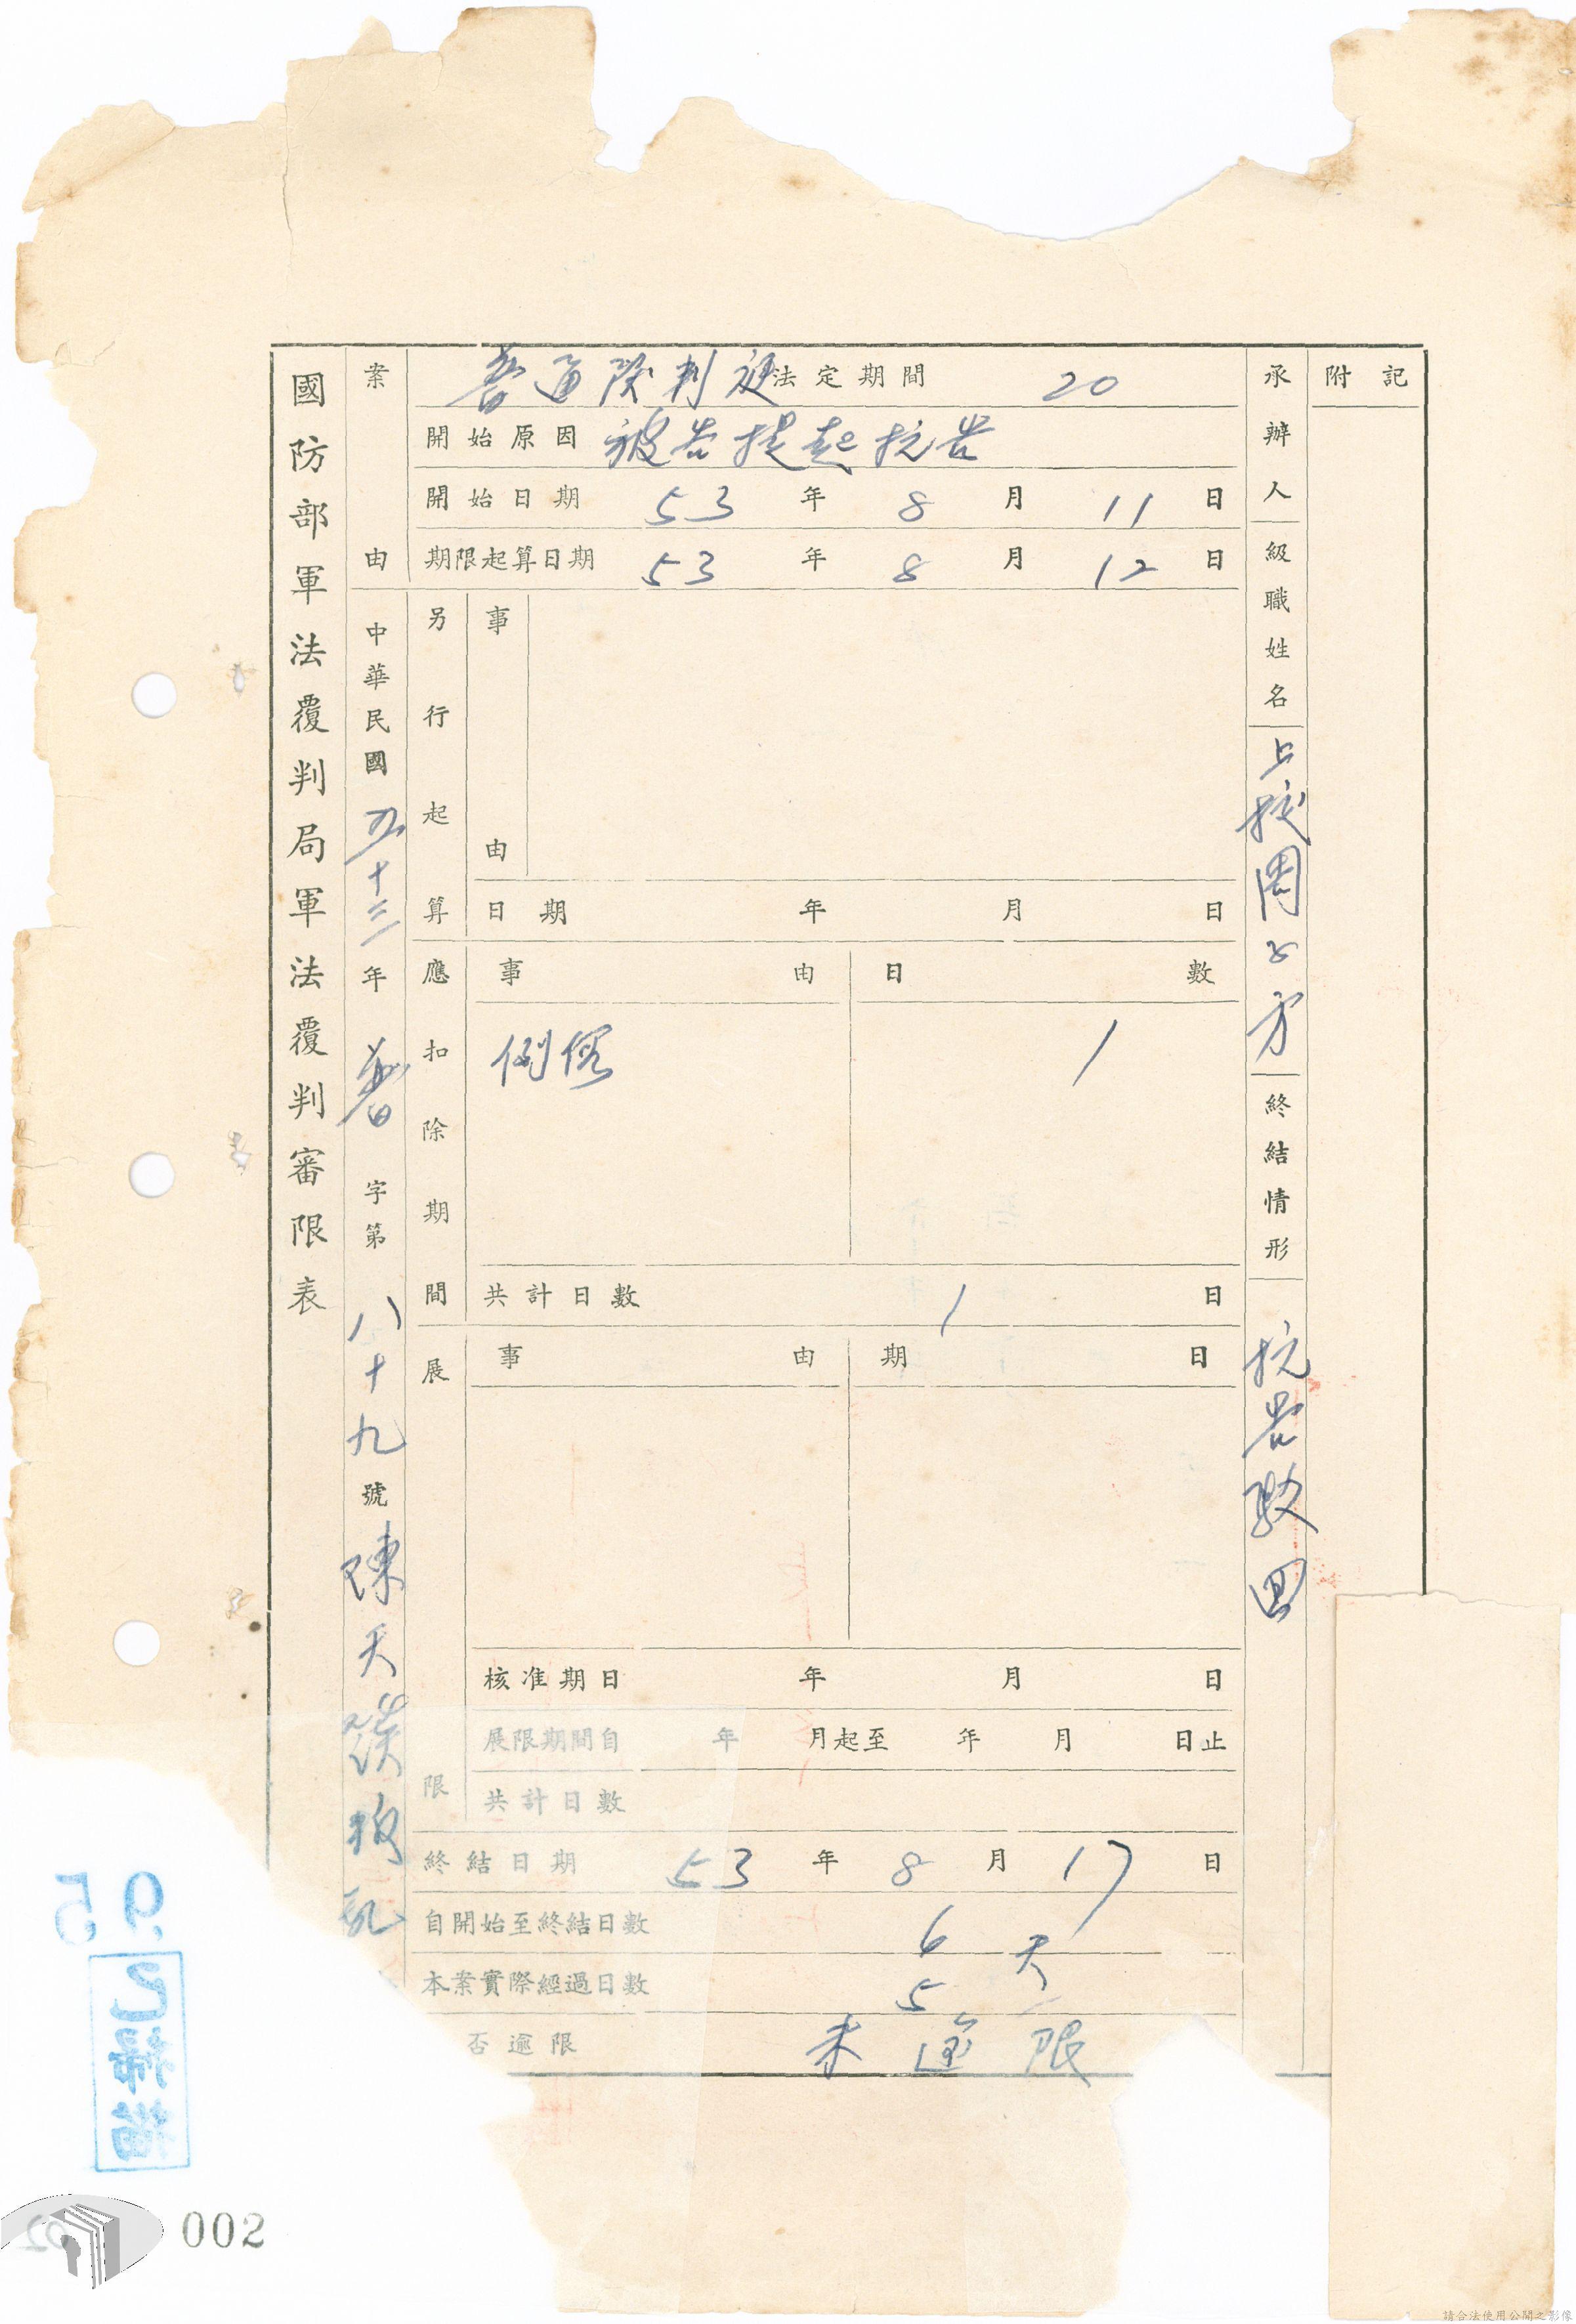 國防部軍法覆判局軍法覆判審限表
案由
中華民國五十三年 普 字第 八十九 號 陳天 叛亂
普通 判 法定期間 20
開始原因 被告提起抗告
開始日期 53 年 8 月 11 日
期限起算日期 53 年 8 月 12 日
另行起算
事由
日期 年 月 日
應扣除期間
事由 日數
例假 1
共計日數 1 日
展限
事由 期日
核准期日 年 月 日
展限期間自 年 月起至 年 月 日止
共計日數
終結日期 53 年 8 月 17 日
自開始至終結日數 6 天
本案實際經過日數 5
否逾限 未逾限
承辦人級職姓名 上校周 方
終結情形 抗告駁回
附記
95
已掃描
002
請合法使用公開之影像